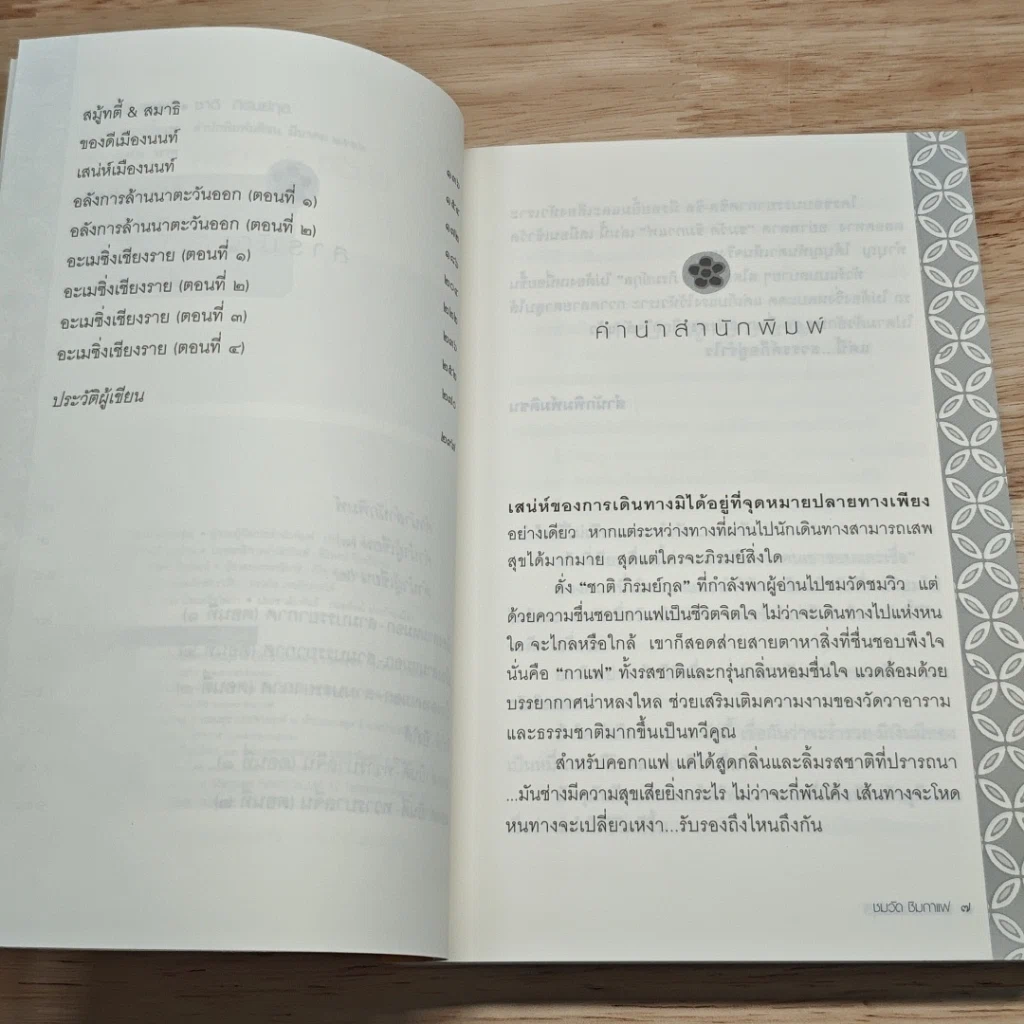 สมู้ทตี้ & สมาธิ
ของดีเมืองนนท์
เสน่ห์เมืองนนท์
อลังการล้านนาตะวันออก (ตอนที่ ๑)
อลังการล้านนาตะวันออก (ตอนที่ ๒)
อะเมซิ่งเชียงราย (ตอนที่ ๑)
อะเมซิ่งเชียงราย (ตอนที่ ๒)
อะเมซิ่งเชียงราย (ตอนที่ ๓)
อะเมซิ่งเชียงราย (ตอนที่ ๔)
ประวัติผู้เขียน
คำนำสำนักพิมพ์
เสน่ห์ของการเดินทางมิได้อยู่ที่จุดหมายปลายทางเพียง
อย่างเดียว หากแต่ระหว่างทางที่ผ่านไปนักเดินทางสามารถเสพ
สุขได้มากมาย สุดแต่ใครจะภิรมย์สิ่งใด
ดั่ง “ชาติ ภิรมย์กุล” ที่กำลังพาผู้อ่านไปชมวัดชมวิว แต่
ด้วยความชื่นชอบกาแฟเป็นชีวิตจิตใจ ไม่ว่าจะเดินทางไปแห่งหน
ใด จะไกลหรือใกล้ เขาก็สอดส่ายสายตาหาสิ่งที่ชื่นชอบพึงใจ
นั่นคือ “กาแฟ” ทั้งรสชาติและกรุ่นกลิ่นหอมชื่นใจ แวดล้อมด้วย
บรรยากาศน่าหลงใหล ช่วยเสริมเติมความงามของวัดวาอาราม
และธรรมชาติมากขึ้นเป็นทวีคูณ
สำหรับคอกาแฟ แค่ได้สูดกลิ่นและลิ้มรสชาติที่ปรารถนา
...มันช่างมีความสุขเสียยิ่งกระไร ไม่ว่าจะกี่พันโค้ง เส้นทางจะโหด
หนทางจะเปลี่ยวเหงา...รับรองถึงไหนถึงกัน
ชมวัด ชิมกาแฟ ๗